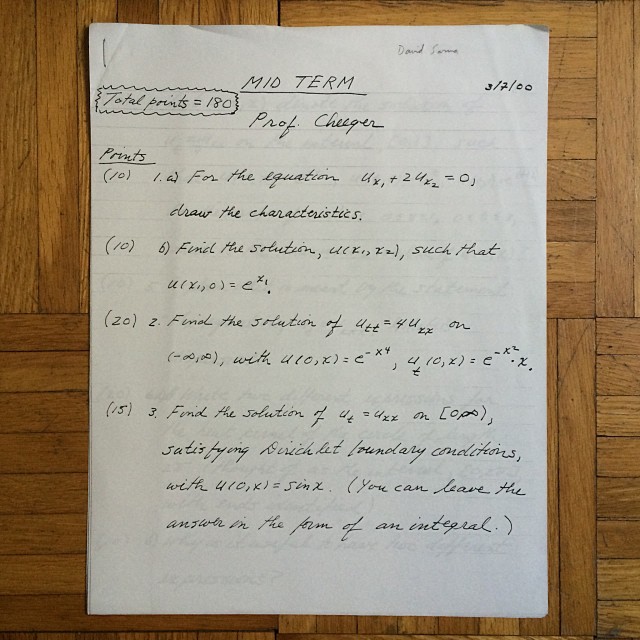 David
MID TERM
3/7/00
Total points = 180
Prof. Cheeger
Points
(10) 1. a) For the equation u_x₁ + 2u_x₂ = 0,
draw the characteristics.
(10) b) Find the solution, u(x₁, x₂), such that
u(x₁, 0) = e^x₁.
(20) 2. Find the solution of u_tt = 4u_xx on
(-∞, ∞), with u(0, x) = e^-x⁴, u_t(0, x) = e^-x²·x.
(15) 3. Find the solution of u_t = u_xx on [0, ∞),
satisfying Dirichlet boundary conditions,
with u(0, x) = sin x. (You can leave the
answer in the form of an integral.)